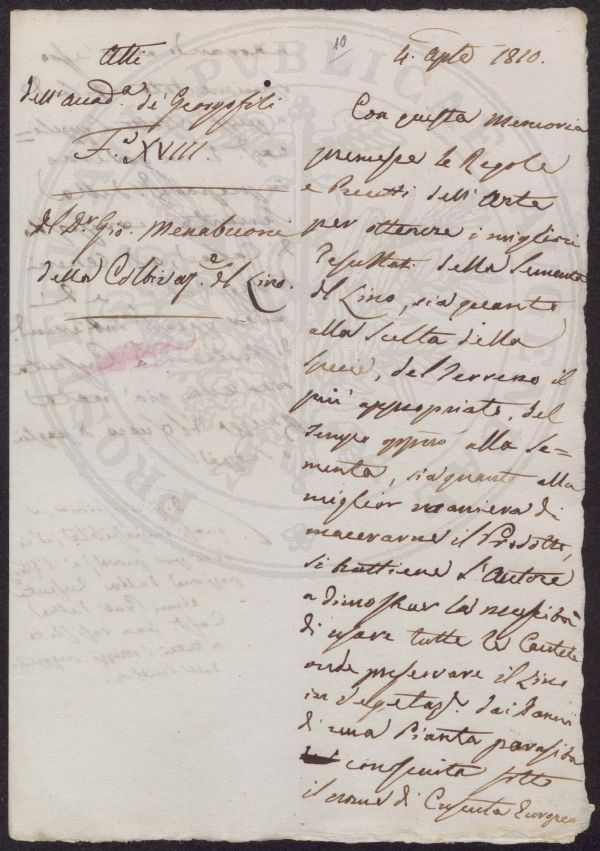 Atti
dell'Accad.a de' Georgofili
F.a XVIII.
Del D.r Gio. Menabuoni
della Coltivaz.e del Lino.
10
4. Aple 1810.
Con questa Memoria
premesse le Regole
e Precetti dell'Arte
per ottenere i migliori
resultati della Sementa
del Lino, sia quanto
alla Scelta della
Specie, del Terreno il
più appropriato, del
Tempo oppno alla Se=
menta, sia quanto alla
miglior maniera di
macerarne il Prodotto,
si trattiene l'Autore
a dimostrar la necessità
di usare tutte le Cautele
onde preservare il Lino
in Vegetaz.e dai Danni
di una Pianta parasita
conosciuta sotto
il nome di Cuscuta Europea